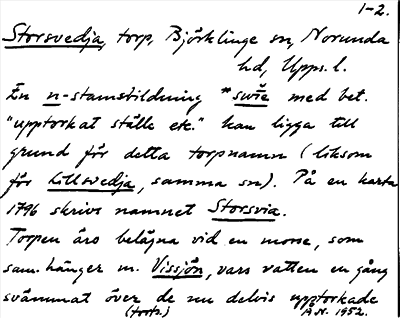 1-2.
Storsvedja, torp, Björklinge sn, Norunda
hd, Upps. l.
En n-stambildning *swīe med bet.
"upptorkat ställe etc." kan ligga till
grund för detta torpnamn (liksom
för Lillsvedja, samma sn). På en karta
1796 skrivs namnet Storsvia.
Torpen äro belägna vid en mosse, som
sam.hänger m. Vissjön, vars vatten en gång
svämmat över de nu delvis upptorkade
(forts.) Å.N. 1952.